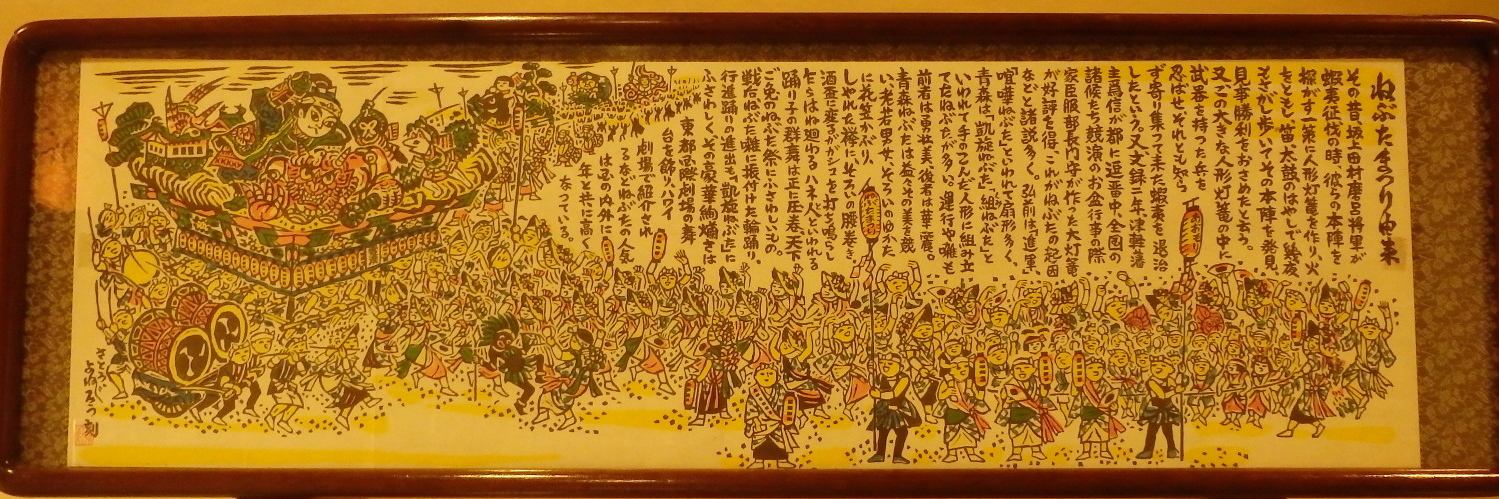 ねぶたまつり由来
その昔、坂上田村麿呂将軍が
蝦夷征伐の時、彼らの本陣を
探がす一策に人形灯篭を作り火
をともし、笛、太鼓のはやしで幾夜
もさがし歩いてその本陣を発見、
見事勝利をおさめたと云う。
又この大きな人形灯篭の中に
武器を持った兵を
忍ばせ、それとも知ら
ず寄り集って来た蝦夷を退治
したという。又文録二年、津軽藩
主為信が都に逗留中、全国の
諸候たち競演のお盆行事の際
家臣服部長門守が作った大灯篭
が好評を得、これがねぶたの起因
などと諸説多く、弘前は「進軍」
「喧嘩ねぷた」といわれて扇形多く、
青森は、「凱旋ねぶた」「組ねぶた」と
いわれて手のこんだ人形に組み立
てたねぶたが多い。運行や囃も
前者は勇壮美、後者は華麗。
青森ねぶたは益々その美を競
い、老若男女、そろいのゆかた
に花笠かぶり、
しゃれた襷にそろいの腰巻き、
酒盃に変るガガシコを打ち鳴らし
はね廻わる「ハネ人」といわれる
踊り子の群舞は正に「青春、天下
ご免のねぶた祭」にふさわしいもの。
戦后ねぶた囃に振付けた輪踊り、
行進踊りの進出も「凱旋ねぶた」に
ふさわしく、その豪華絢爛さは
東都国際劇場の舞
台を飾り、ハワイ
劇場で紹介され
るなどねぶたの人気
は国の内外に
年と共に高く
なっている。
ねぶたまつり
ねぶた
さとう
よねじろう
刻